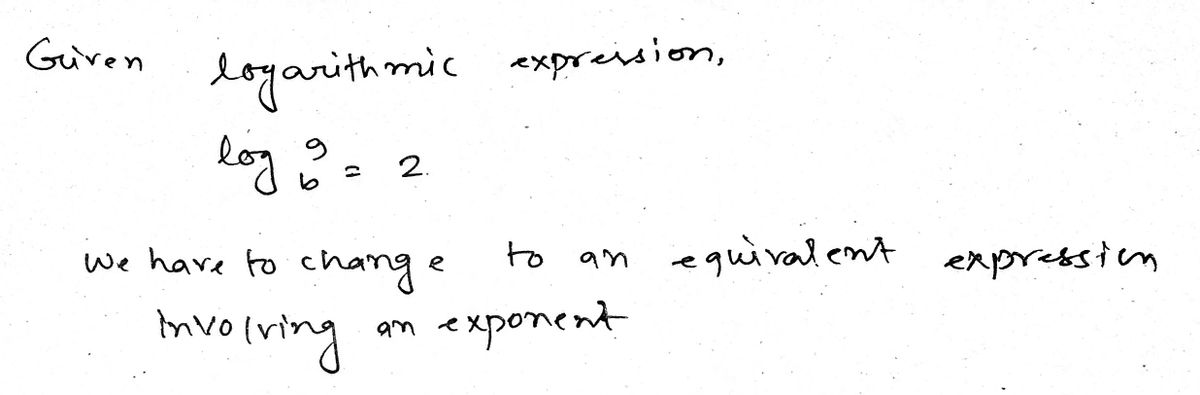 Given logarithmic expression,
log_b^9 = 2.
we have to change to an equivalent expression
involving an exponent